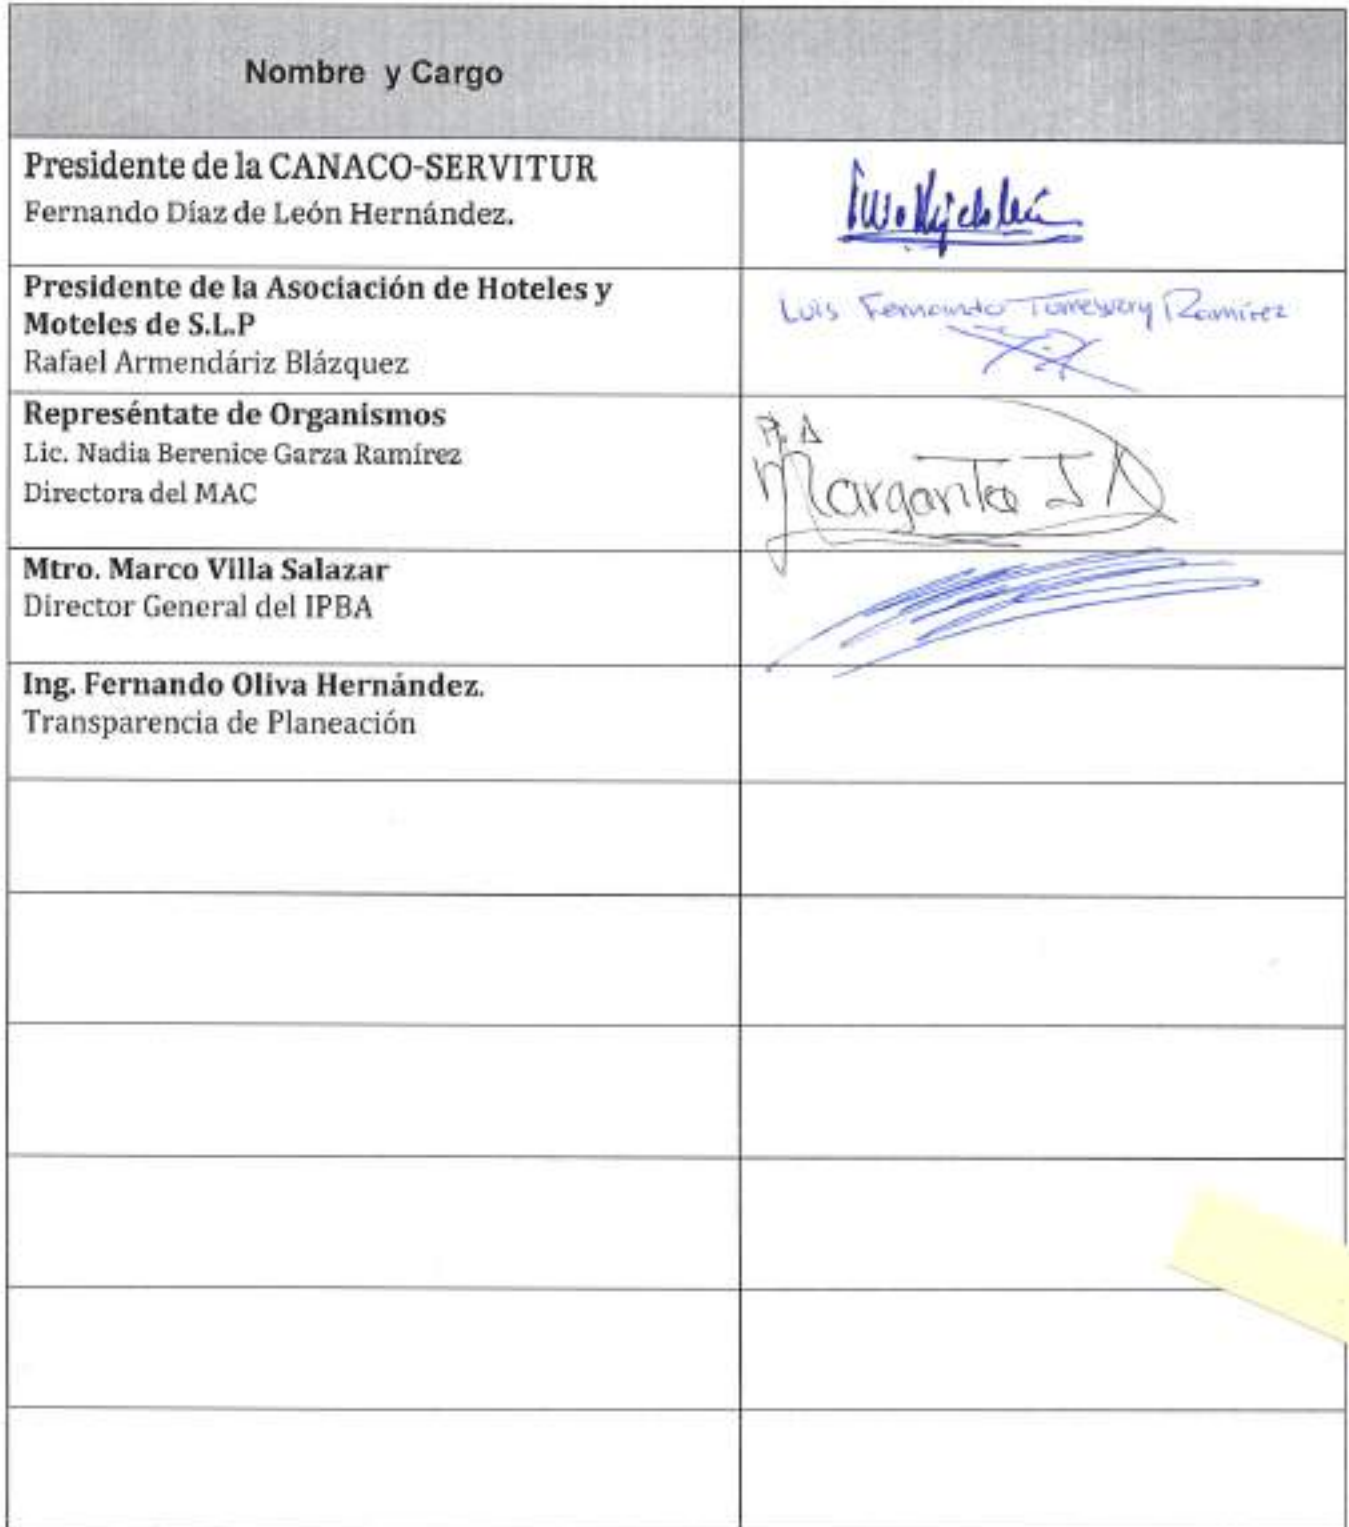 Nombre y Cargo
Presidente de la CANACO-SERVITUR
Fernando Díaz de León Hernández.
Presidente de la Asociación de Hoteles y
Moteles de S.L.P
Rafael Armendáriz Blázquez
Luis Fernando Ramírez
Represéntate de Organismos
Lic. Nadia Berenice Garza Ramírez
Directora del MAC
P. A
Margarita J
Mtro. Marco Villa Salazar
Director General del IPBA
Ing. Fernando Oliva Hernández.
Transparencia de Planeación